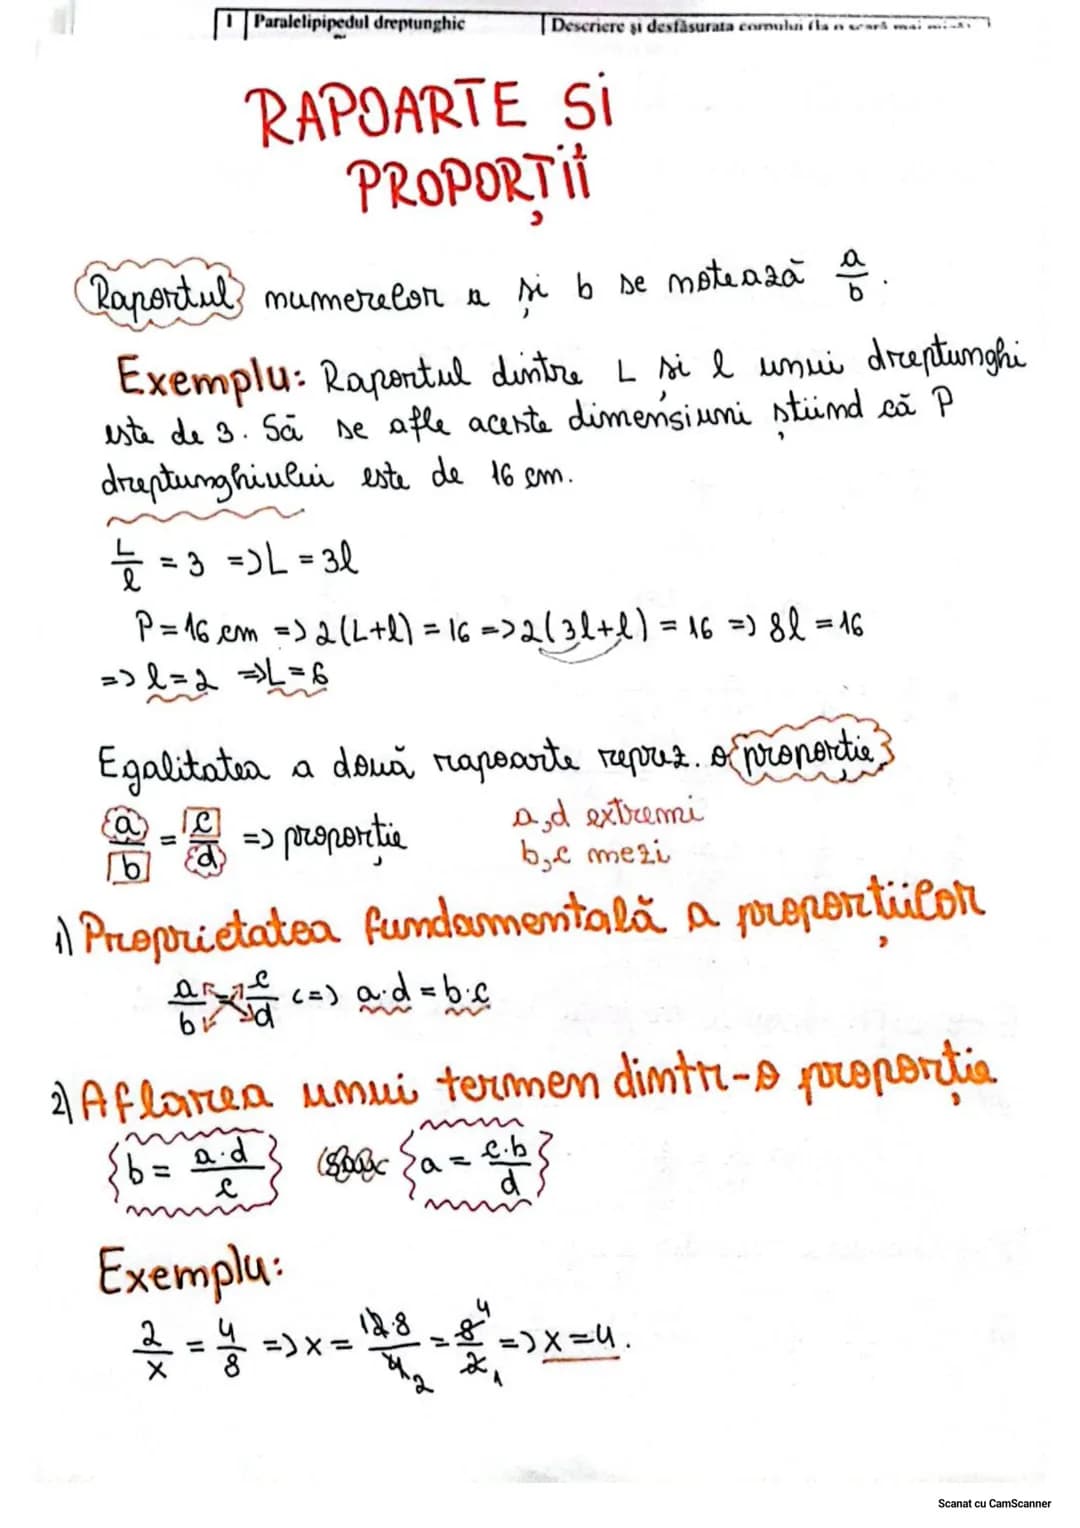 1 Paralelipipedul dreptunghic Descriere și desfășurata corpului (la o scară mai mică)
RAPOARTE SI
PROPORȚII
Raportul numerelor a și b se notează a/b.
Exemplu: Raportul dintre L și l unui dreptunghi
este de 3. Să se afle aceste dimensiuni știind că P
dreptunghiului este de 16 cm.
L/l = 3 => L = 3l
P = 16 cm => 2(L+l) = 16 => 2(3l+l) = 16 => 8l = 16
=> l = 2 => L = 6
Egalitatea a două rapoarte reprez. o proporție
a/b = c/d => proporție
a,d extremi
b,c mezi
1) Proprietatea fundamentală a proporțiilor
a/b = c/d <=> a·d = b·c
2) Aflarea unui termen dintr-o proporție
b = a·d/c a = c·b/d
Exemplu:
2/x = 4/8 => x = 2·8/4 2 = 8 4/2 1 => x = 4.
Scanat cu CamScanner